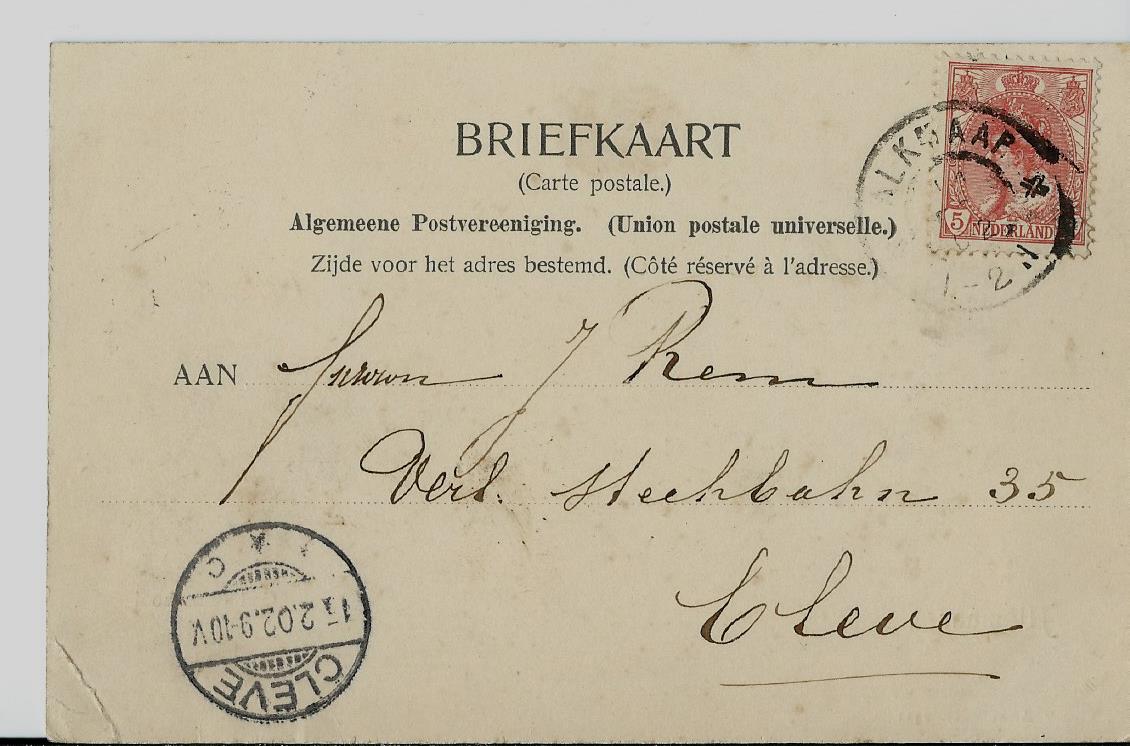 BRIEFKAART
(Carte postale.)
Algemeene Postvereeniging. (Union postale universelle.)
Zijde voor het adres bestemd. (Côté réservé à l'adresse.)
5 NEDERLAND
ALKMAAR
1-2 N
AAN Herrn J Rem
Verl. Stechbahn 35
Cleve
CLEVE
2.02.9-10V